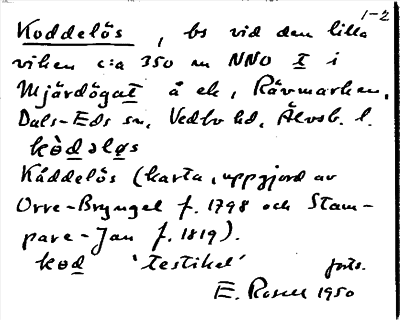 1-2
Koddelös, bs vid den lilla
viken c:a 350 m NNO I i
Mjärdögat å ek, Rävmarken,
Dals-Eds sn, Vedbo hd, Älvsb. l.
kòdəløs
Kåddelös (karta, uppgjord av
Orre-Bryngel f. 1798 och Stam-
pare-Jan f. 1819).
kod 'testikel' forts.
E. Rosell 1950